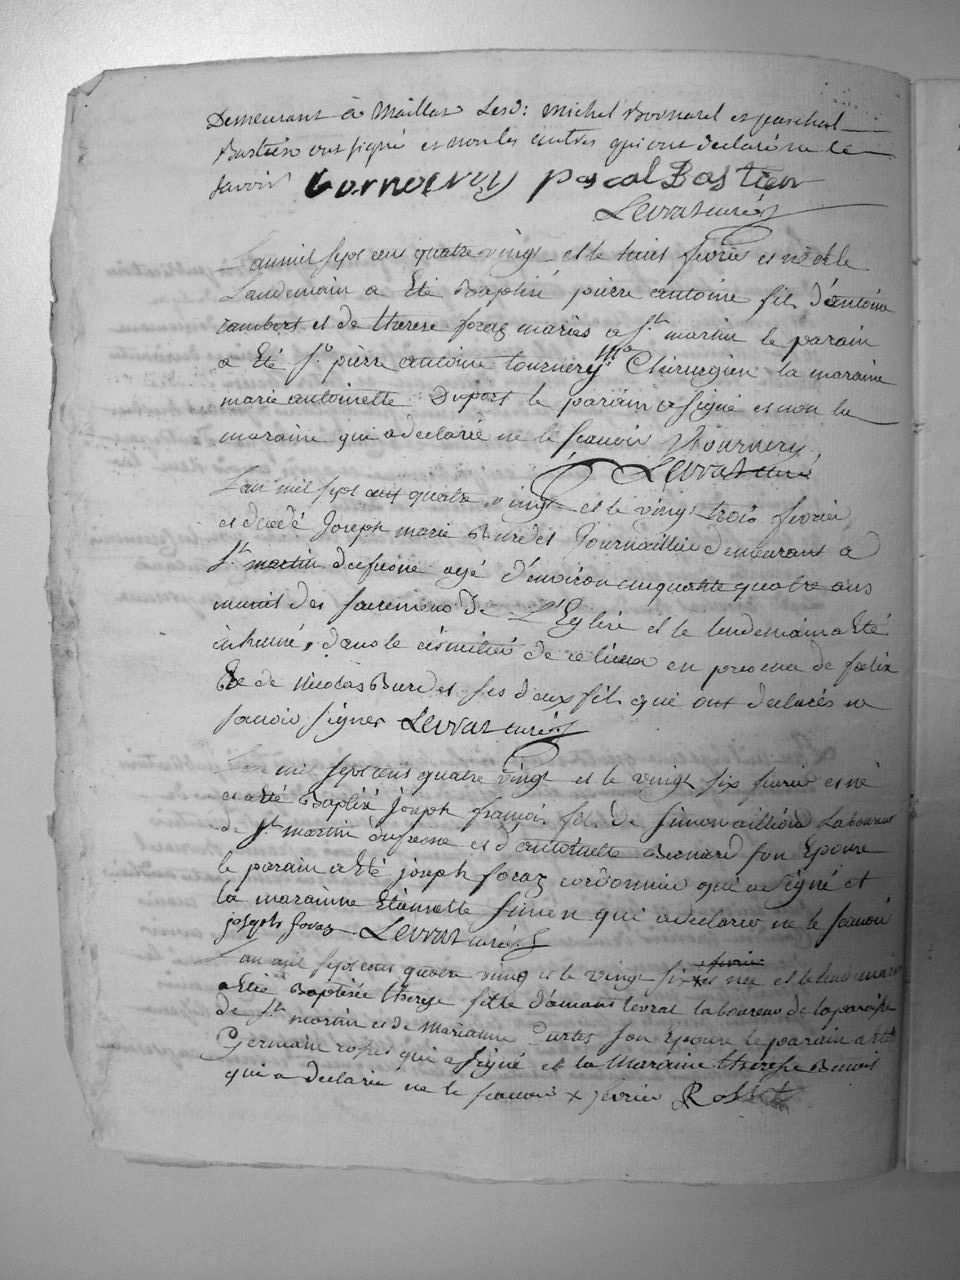 Demeurant à Maillat Lesd: michel Bornarel et paschal
Bastien ont signé et non les autres qui ont declaré ne le
savoir Bornarel pascal Bastien
Levrat curé
L'an mil sept cens quatre vingt et le huict fevrier est né et le
Landemain a Eté Baptisé pierre antoine fils d'antoine
Lambert et de therese foraz mariés a St martin le parain
a Eté Sr pierre antoine tournery Me Chirurgien la maraine
marie antoinette Duport le parain a signé et non la
maraine qui a declaré ne le scavoir Tournery
Levrat curé
L'an mil sept cent quatre vingt et le vingt trois fevrier
est decedé Joseph marie Burdet Journaillier demeurant a
St martin dufresne agé d'environ cinquante quatre ans
munit des sacremens De L'Eglise et le lendemain a Eté
inhumé, dans le cimitiere de ce lieux en presence de felix
Et de Nicolas Burdet ses deux fils qui ont declarés ne
scavoir signer Levrat curé
L'an mil sept cens quatre vingt et le vingt six fevrier est né
et a eté Baptisé joseph françois fils de Simon Laboureur
de St martin dufresne et d'antoinette Bernard son Epouse
le parain a Eté joseph foraz cordonnier qui a signé et
la maraine Etiennette Simon qui a declaréz ne le scavoir
joseph foraz Levrat curé
L'an mil sept cens quatre vingt et le vingt six fevrier x est née et le lendemain
a Eté Baptisée therese fille d'amant levrat laboureur de la paroisse
de St martin et de Marianne Curtet son Epouse le parain a Eté
Germain rosset qui a signé et la Maraine therese Benoit
qui a declaréz ne le scavoir x fevrier Rosset